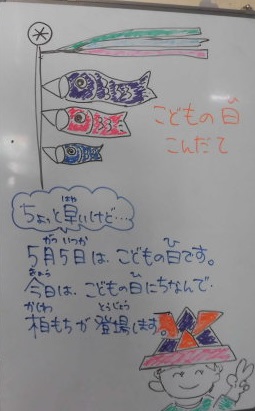 こどもの日
こんだて
ちょっと早いけど…
5月5日は、こどもの日です。
今日は、こどもの日にちなんで
柏もちが登場します。